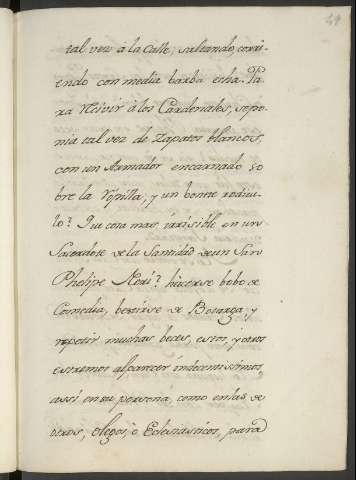 49
tal vez à la Calle, saltando, corri-
endo con media barba echa. Pa-
ra recivir à los Cardenales, se po-
nia tal vez de Zapatos blancos,
con un Armador encarnado so
bre la Ropilla, y un bonete rediculo
lo? Que cosa mas irrisible en un
Sacerdote de la Santidad de un San
Phelipe Neri? hicerse bobo de
Comedia, bestirse de Botarga, y
repetir muchas beces, estos, y otros
estremos al parecer indecentissimos
assi en su persona, como en las de
otros, Clerigos, ò Eclesiasticos, para